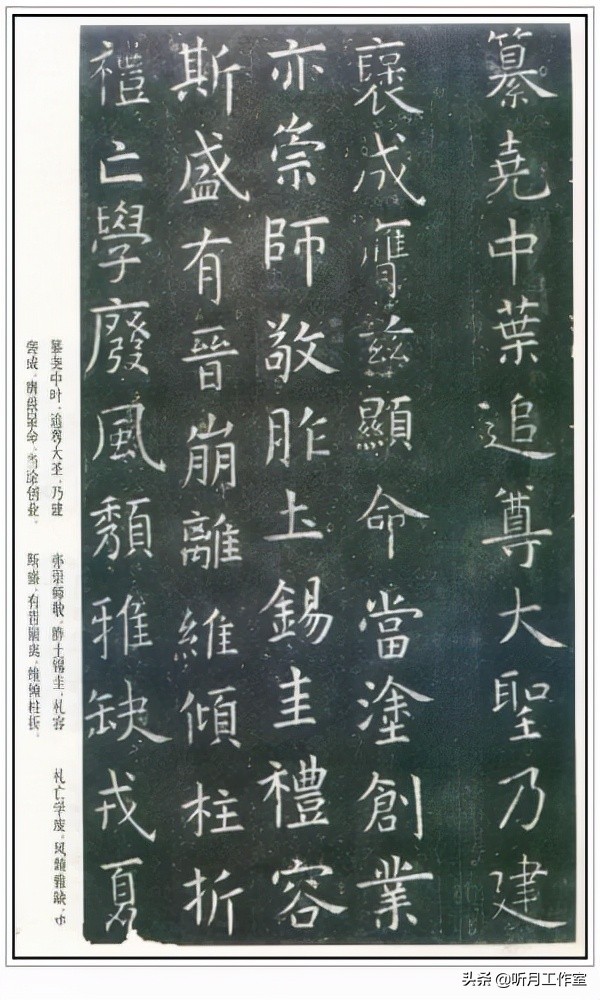 纂堯中葉追尊大聖乃建
褒成膺茲顯命當塗創業
亦崇師敬胙土錫圭禮容
斯盛有晉崩離維傾柱折
禮亡學廢風頹雅缺戎夏
纂尧中叶，追尊大圣，乃建
褒成，膺兹显命，当涂创业，
亦崇师敬，胙土锡圭，礼容
斯盛，有晋崩离，维倾柱折，
礼亡学废，风颓雅缺，
头条 @听月工作室